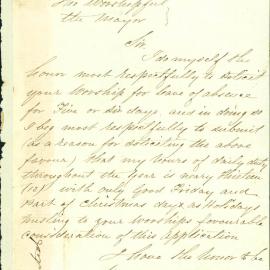 His Worshipful
the Mayor
Sir
I do myself the
honor most respectfully to
your Worship for leave of absence
for Five or six days, and in doing so
I beg most respectfully to submit
(as a reason for soliciting the above
favour) that my hours of daily duty
throughout the year is nearly thirteen
(13) with only Good Friday and
Part of Christmas days as Holidays
trusting to your Worships favourable
consideration of this application
I have the honor to be